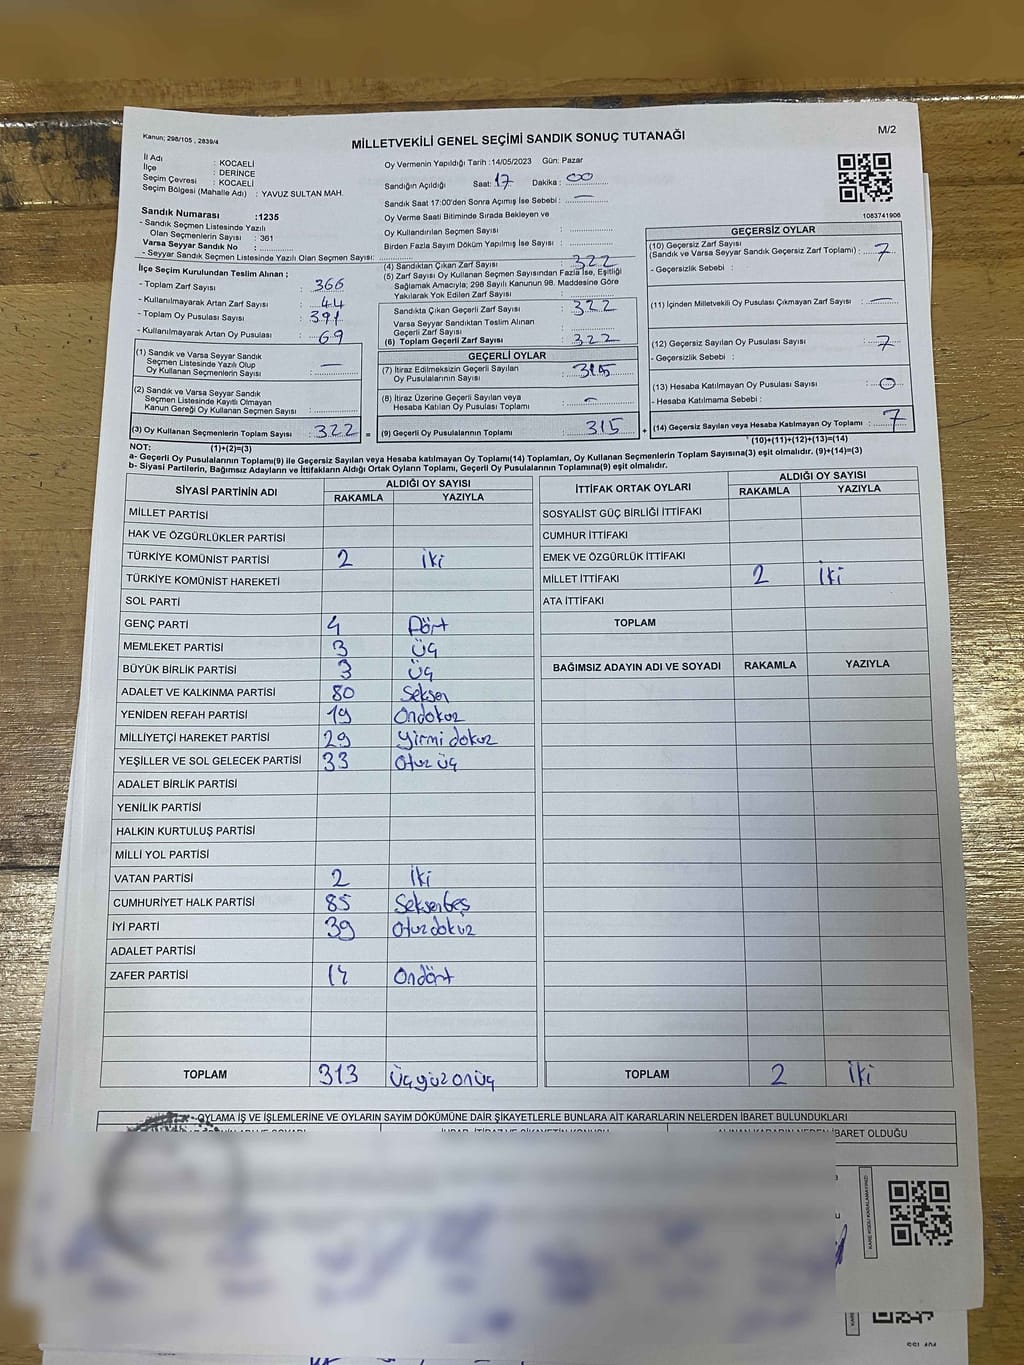 Kanun; 298/105 , 2839/4
MİLLETVEKİLİ GENEL SEÇİMİ SANDIK SONUÇ TUTANAĞI
M/2
İl Adı : KOCAELİ
İlçe : DERİNCE
Seçim Çevresi : KOCAELİ
Seçim Bölgesi (Mahalle Adı) : YAVUZ SULTAN MAH.
Sandık Numarası :1235
- Sandık Seçmen Listesinde Yazılı
Olan Seçmenlerin Sayısı : 361
Varsa Seyyar Sandık No :
- Seyyar Sandık Seçmen Listesinde Yazılı Olan Seçmen Sayısı:
Oy Vermenin Yapıldığı Tarih :14/05/2023 Gün: Pazar
Sandığın Açıldığı Saat: 17 Dakika : 00
Sandık Saat 17:00'den Sonra Açımış İse Sebebi : —
Oy Verme Saati Bitiminde Sırada Bekleyen ve
Oy Kullandırılan Seçmen Sayısı :
Birden Fazla Sayım Döküm Yapılmış İse Sayısı :
1083741906
İlçe Seçim Kurulundan Teslim Alınan ;
- Toplam Zarf Sayısı : 366
- Kullanılmayarak Artan Zarf Sayısı : 44
- Toplam Oy Pusulası Sayısı : 391
- Kullanılmayarak Artan Oy Pusulası : 69
(1) Sandık ve Varsa Seyyar Sandık
Seçmen Listesinde Yazılı Olup
Oy Kullanan Seçmenlerin Sayısı : —
(2) Sandık ve Varsa Seyyar Sandık
Seçmen Listesinde Kayıtlı Olmayan
Kanun Gereği Oy Kullanan Seçmen Sayısı :
(3) Oy Kullanan Seçmenlerin Toplam Sayısı : 322
(4) Sandıktan Çıkan Zarf Sayısı : 322
(5) Zarf Sayısı Oy Kullanan Seçmen Sayısından Fazla İse, Eşitliği
Sağlamak Amacıyla; 298 Sayılı Kanunun 98. Maddesine Göre
Yakılarak Yok Edilen Zarf Sayısı :
Sandıkta Çıkan Geçerli Zarf Sayısı : 322
Varsa Seyyar Sandıktan Teslim Alınan
Geçerli Zarf Sayısı :
(6) Toplam Geçerli Zarf Sayısı : 322
GEÇERLİ OYLAR
(7) İtiraz Edilmeksizin Geçerli Sayılan
Oy Pusulalarının Sayısı : 315
(8) İtiraz Üzerine Geçerli Sayılan veya
Hesaba Katılan Oy Pusulası Toplamı : -
= (9) Geçerli Oy Pusulalarının Toplamı : 315 +
GEÇERSİZ OYLAR
(10) Geçersiz Zarf Sayısı
(Sandık ve Varsa Seyyar Sandık Geçersiz Zarf Toplamı) : 7
- Geçersizlik Sebebi :
(11) İçinden Milletvekili Oy Pusulası Çıkmayan Zarf Sayısı : —
(12) Geçersiz Sayılan Oy Pusulası Sayısı : 7
- Geçersizlik Sebebi :
(13) Hesaba Katılmayan Oy Pusulası Sayısı : 0
- Hesaba Katılmama Sebebi :
(14) Geçersiz Sayılan veya Hesaba Katılmayan Oy Toplamı : 7
NOT: (1)+(2)=(3)
(10)+(11)+(12)+(13)=(14)
a- Geçerli Oy Pusulalarının Toplamı(9) ile Geçersiz Sayılan veya Hesaba Katılmayan Oy Toplamı(14) Toplamları, Oy Kullanan Seçmenlerin Toplam Sayısına(3) eşit olmalıdır. (9)+(14)=(3)
b- Siyasi Partilerin, Bağımsız Adayların ve İttifakların Aldığı Ortak Oyların Toplamı, Geçerli Oy Pusulalarının Toplamına(9) eşit olmalıdır.
SİYASİ PARTİNİN ADI ALDIĞI OY SAYISI
RAKAMLA YAZIYLA
MİLLET PARTİSİ
HAK VE ÖZGÜRLÜKLER PARTİSİ
TÜRKİYE KOMÜNİST PARTİSİ 2 iki
TÜRKİYE KOMÜNİST HAREKETİ
SOL PARTİ
GENÇ PARTİ 4 Dört
MEMLEKET PARTİSİ 3 Üç
BÜYÜK BİRLİK PARTİSİ 3 Üç
ADALET VE KALKINMA PARTİSİ 80 Seksen
YENİDEN REFAH PARTİSİ 19 Ondokuz
MİLLİYETÇİ HAREKET PARTİSİ 29 Yirmi dokuz
YEŞİLLER VE SOL GELECEK PARTİSİ 33 Otuz üç
ADALET BİRLİK PARTİSİ
YENİLİK PARTİSİ
HALKIN KURTULUŞ PARTİSİ
MİLLİ YOL PARTİSİ
VATAN PARTİSİ 2 İki
CUMHURİYET HALK PARTİSİ 85 Seksenbeş
İYİ PARTİ 39 Otuzdokuz
ADALET PARTİSİ
ZAFER PARTİSİ 14 Ondört
TOPLAM 313 Üçyüzonüç
İTTİFAK ORTAK OYLARI ALDIĞI OY SAYISI
RAKAMLA YAZIYLA
SOSYALİST GÜÇ BİRLİĞİ İTTİFAKI
CUMHUR İTTİFAKI
EMEK VE ÖZGÜRLÜK İTTİFAKI
MİLLET İTTİFAKI 2 İki
ATA İTTİFAKI
TOPLAM
BAĞIMSIZ ADAYIN ADI VE SOYADI RAKAMLA YAZIYLA
TOPLAM 2 İki
OYLAMA İŞ VE İŞLEMLERİNE VE OYLARIN SAYIM DÖKÜMÜNE DAİR ŞİKAYETLERLE BUNLARA AİT KARARLARIN NELERDEN İBARET BULUNDUKLARI
İBARET OLDUĞU
KARE KODU KARALAMAYINIZ!